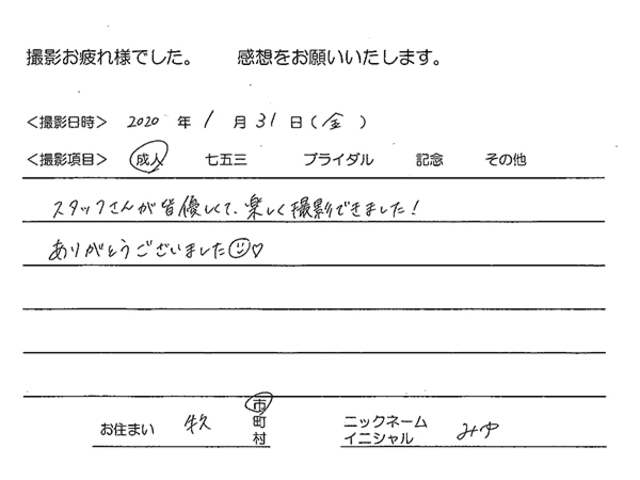 撮影お疲れ様でした。 感想をお願いいたします。
＜撮影日時＞ 2020 年 1 月 31 日（金）
＜撮影項目＞ 成人 七五三 ブライダル 記念 その他
スタッフさんが皆優しくて、楽しく撮影できました！
ありがとうございました☺♡
お住まい 牛久 市 町 村 ニックネーム イニシャル みゆ